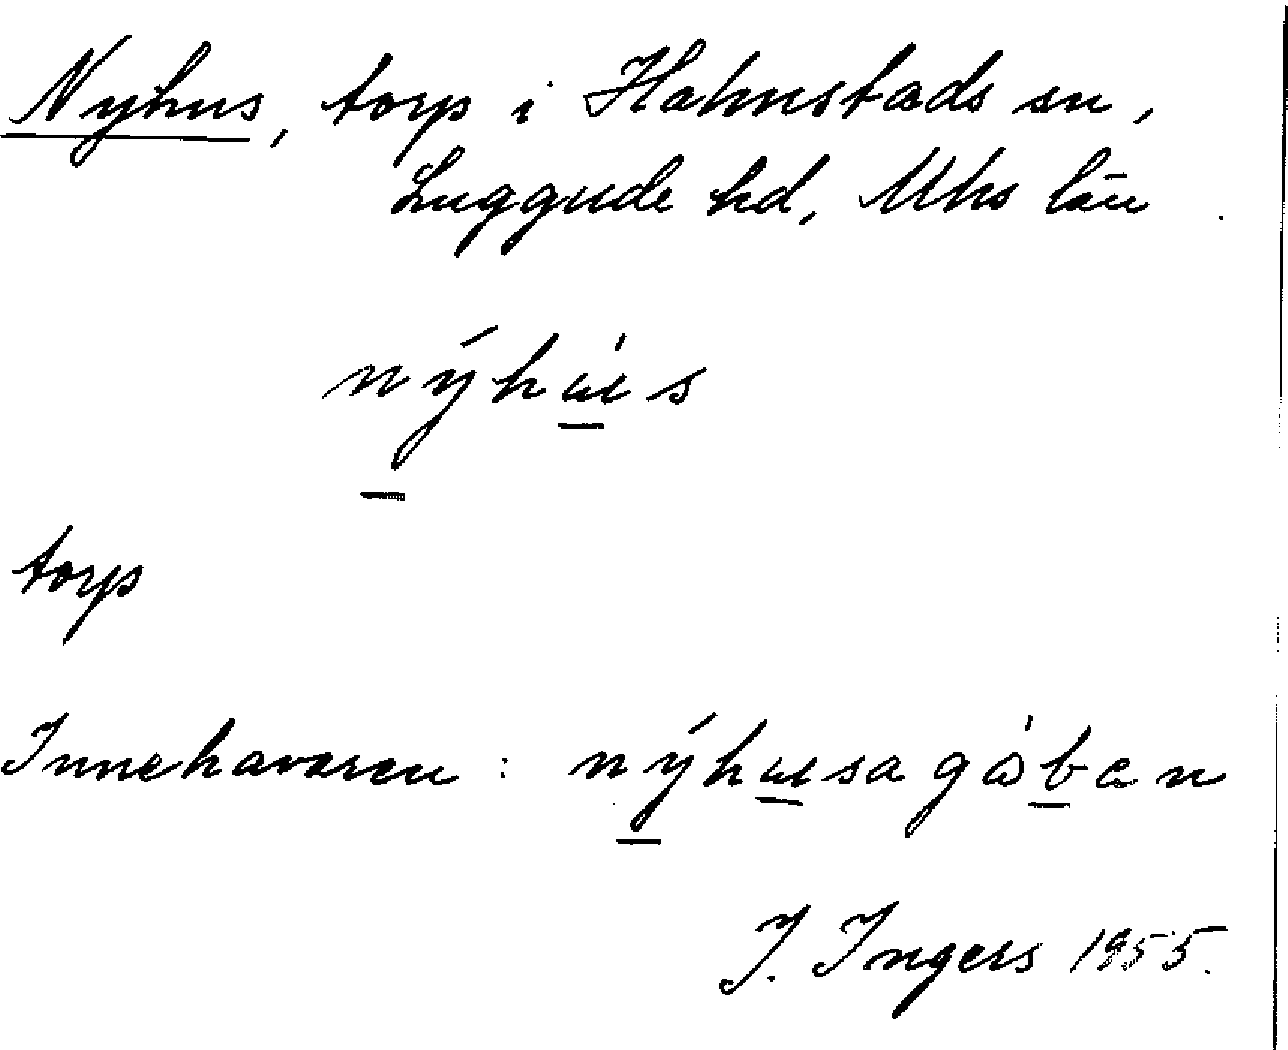 Nyhus, torp i Halmstads sn,
Luggude hd, Mhs län
nýhu̇s
torp
Innehavaren: nýhusagȧban
J. Ingers 1955.